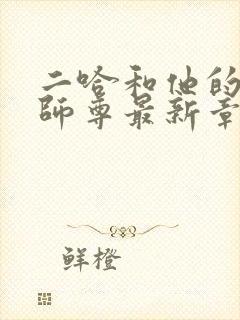 二哈和他的
师尊最新章
鲜橙